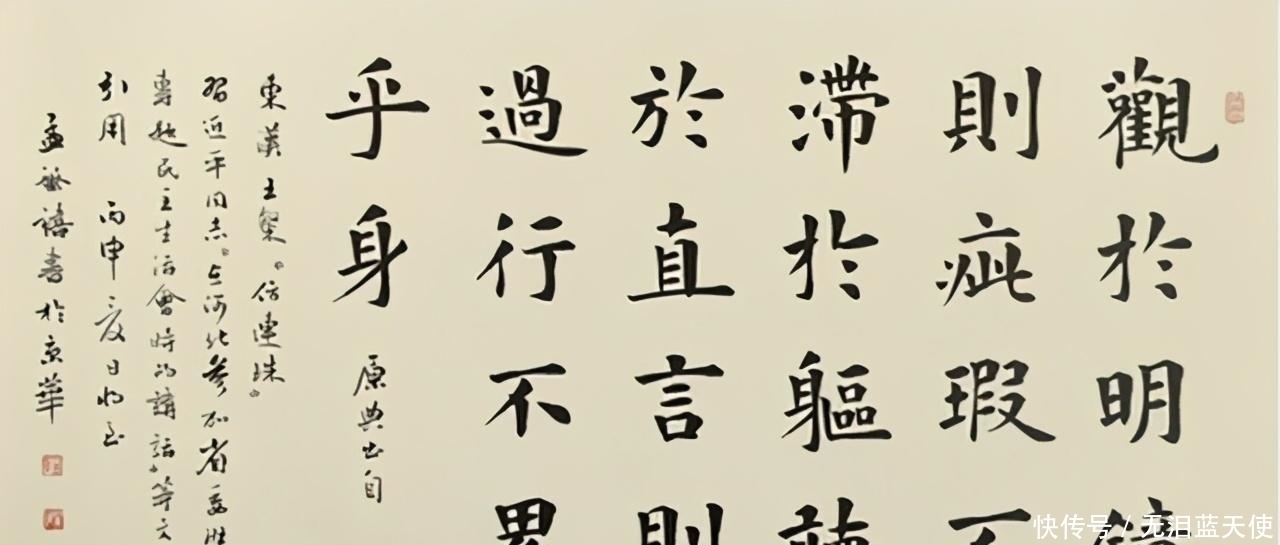 觀於明鏡
則疵瑕不
滯於軀聽
於直言則
過行不累
乎身 原典出自
東漢王粲《仿連珠》
習近平同志《在河北參加省委班
專題民主生活會時的講話》等文
引用 丙申夏日
孟繁禧書於京華
快传号 / 无泪蓝天使